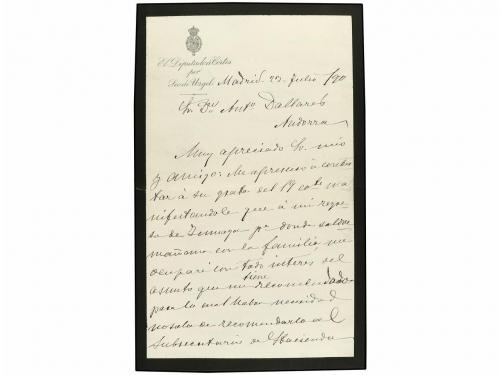 El Diputado à Cortes
por
Seo de Urgel
Madrid 23 Julio /90
Sr. Dn. Antº Dallareb
Andorra
Muy apreciado Sr. mio
y amigo: Me apresuro à contes
tar à su grata del 19 cote ma
nifestandole que à mi regre
so de pª donde saldre
mañana con la familia, me
ocuparé con todo interés del
asunto que me tiene recomendado
para lo cual habra necesidad
no solo de recomendarlo al
Subsecretario de Hacienda